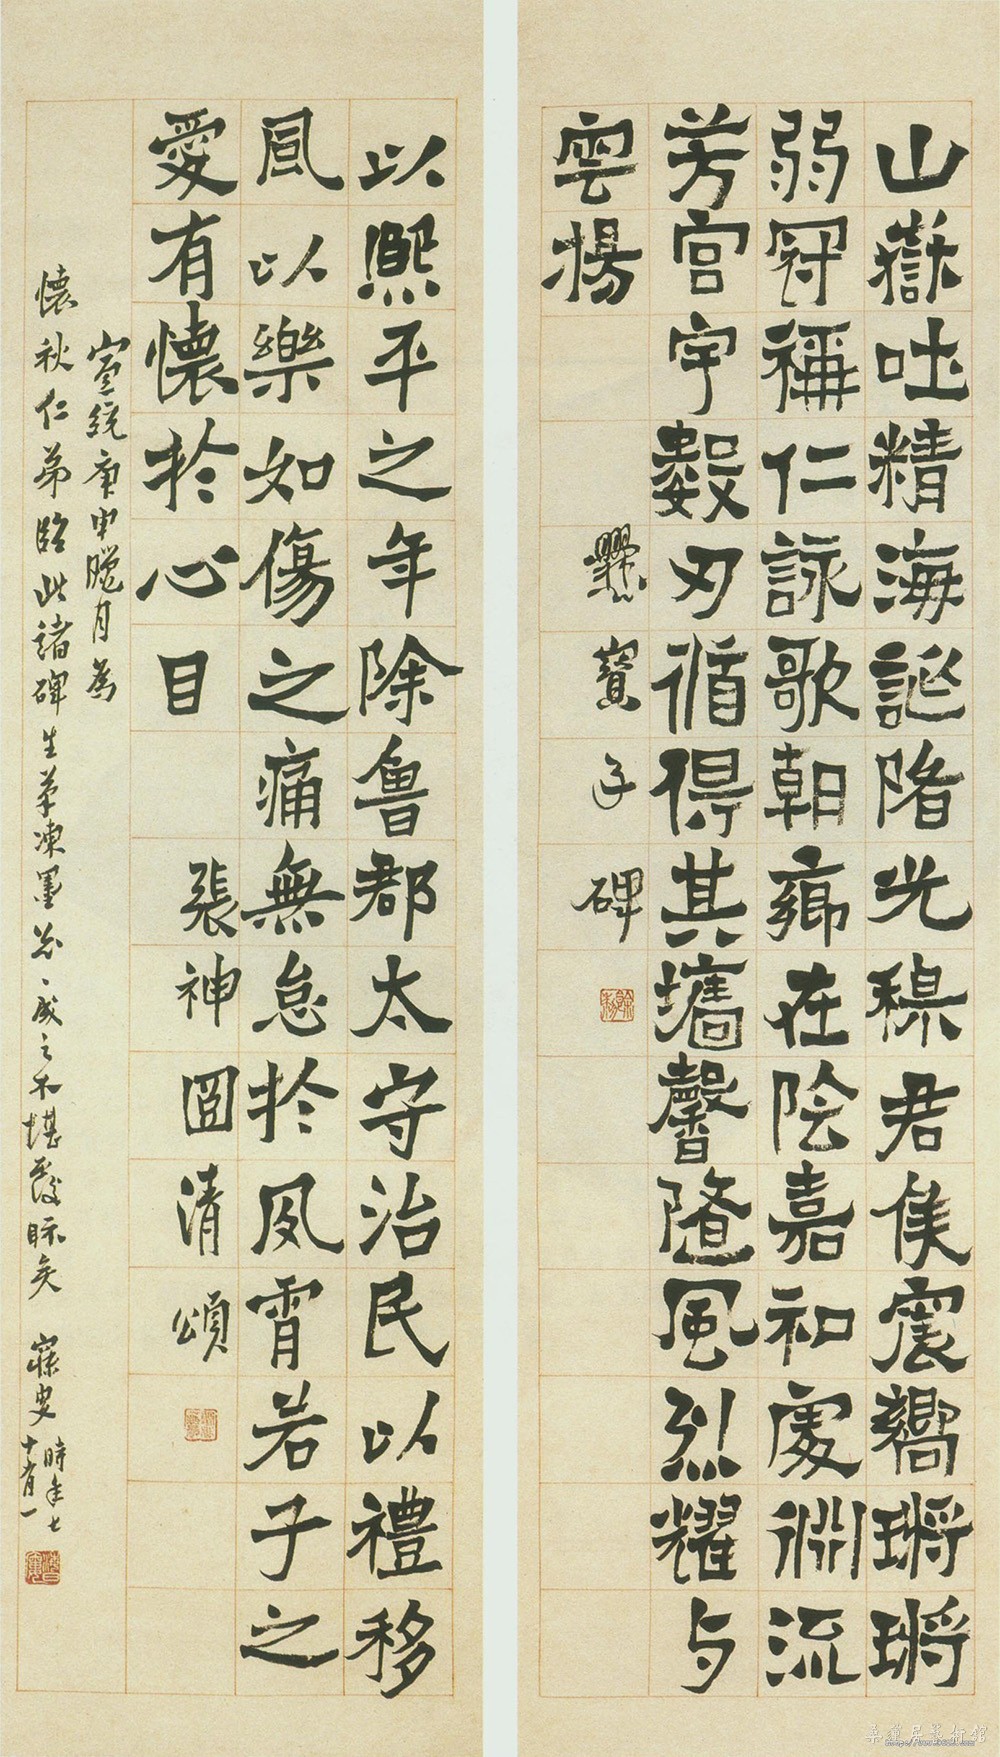 山嶽吐精海誕陏光穆君侯震嚮琳琳
弱冠稱仁詠歌朝鄉在陰嘉和處淵流
芳宮宇數刃循得其墻馨隨風烈耀与
雲揚
爨寶子碑
以熙平之年除魯郡太守治民以禮移
風以樂如傷之痛無怠於夙宵若子之
愛有懷於心目
張神囧清頌
宣統庚申臘月為
懷秋仁弟臨此諸碑生筆凍墨
成之不堪覆眎矣
寐叟
時年七
十有一